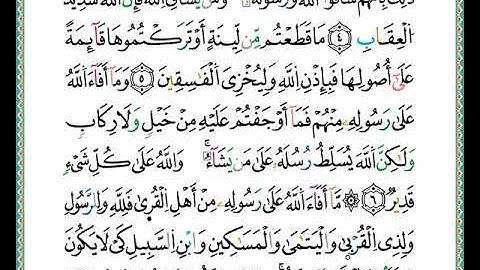 ذَٰلِكَ بِأَنَّهُمْ شَاقُّوا اللَّهَ وَرَسُولَهُ وَمَنْ يُشَاقِّ اللَّهَ فَإِنَّ اللَّهَ شَدِيدُ
الْعِقَابِ ﴿٤﴾ مَا قَطَعْتُمْ مِّن لِّينَةٍ أَوْ تَرَكْتُمُوهَا قَائِمَةً
عَلَىٰ أُصُولِهَا فَبِإِذْنِ اللَّهِ وَلِيُخْزِيَ الْفَاسِقِينَ ﴿٥﴾ وَمَا أَفَاءَ اللَّهُ
عَلَىٰ رَسُولِهِ مِنْهُمْ فَمَا أَوْجَفْتُمْ عَلَيْهِ مِنْ خَيْلٍ وَلَا رِكَابٍ
وَلَٰكِنَّ اللَّهَ يُسَلِّطُ رُسُلَهُ عَلَىٰ مَن يَشَاءُ ۚ وَاللَّهُ عَلَىٰ كُلِّ شَيْءٍ
قَدِيرٌ ﴿٦﴾ مَّا أَفَاءَ اللَّهُ عَلَىٰ رَسُولِهِ مِنْ أَهْلِ الْقُرَىٰ فَلِلَّهِ وَلِلرَّسُولِ
وَلِذِي الْقُرْبَىٰ وَالْيَتَامَىٰ وَالْمَسَاكِينِ وَابْنِ السَّبِيلِ كَيْ لَا يَكُونَ